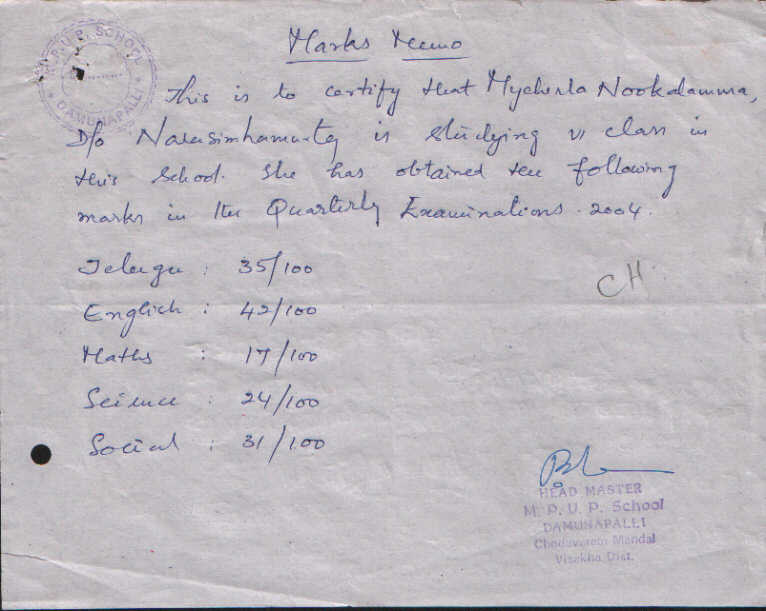 M.P.U.P. SCHOOL
DAMUNAPALLI
Marks Memo
This is to certify that Mycherla Nookalamma,
D/o Narasimhamurty is studying VI class in
this School. She has obtained the following
marks in the Quarterly Examinations. 2004.
Telugu : 35/100
CH
English : 42/100
Maths : 17/100
Science : 24/100
Social : 31/100
HEAD MASTER
M. P. U. P. School
DAMUNAPALLI
Chodavaram Mandal
Visakha Dist.